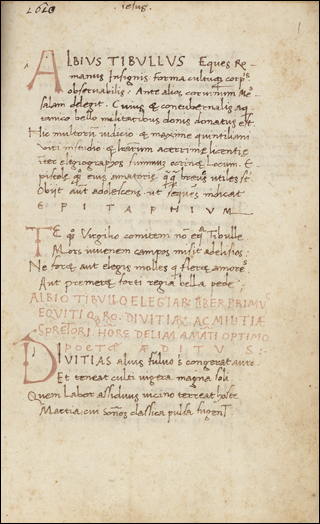 2620
iesus.
1
ALBIUS TIBULLUS Eques Re
manus Insignis forma cultuq corp's
obseruabilis: Ante alios coruinum Me
salam delegit. Cuius & contubernalis aq
tanico bello militaribus donis donatus est.
Hic multorum iudicio & maxime quintiliani
uiri in studio & litterarum acerrime
inter elegiographos summus Locum. E
pistolę qq eius amatorię qq breues utiles st.
Obijt aut adolescens. ut sequens indicat
EPITAPHIUM
TE qq Virgilio comitem no eq Tibulle
Mors iuuenem campos misit ad elisios:
Ne foret aut elegis molles qui fleret amores
Aut premeret forti regia bella pede
ALBIO TIBUL ELEGIAR LIBER PRIMUS
EQUITI RO. DIVITIAR AC MILITIAE
SPRETORI. AMATI OPTIMO
POETAE
DIVITIAS alius fuluo s congerat auro.
Et teneat culti iugera magna soli
Quem Labor assiduus uicino terreat hoste
Martia cui sonos classica pulsa fugent